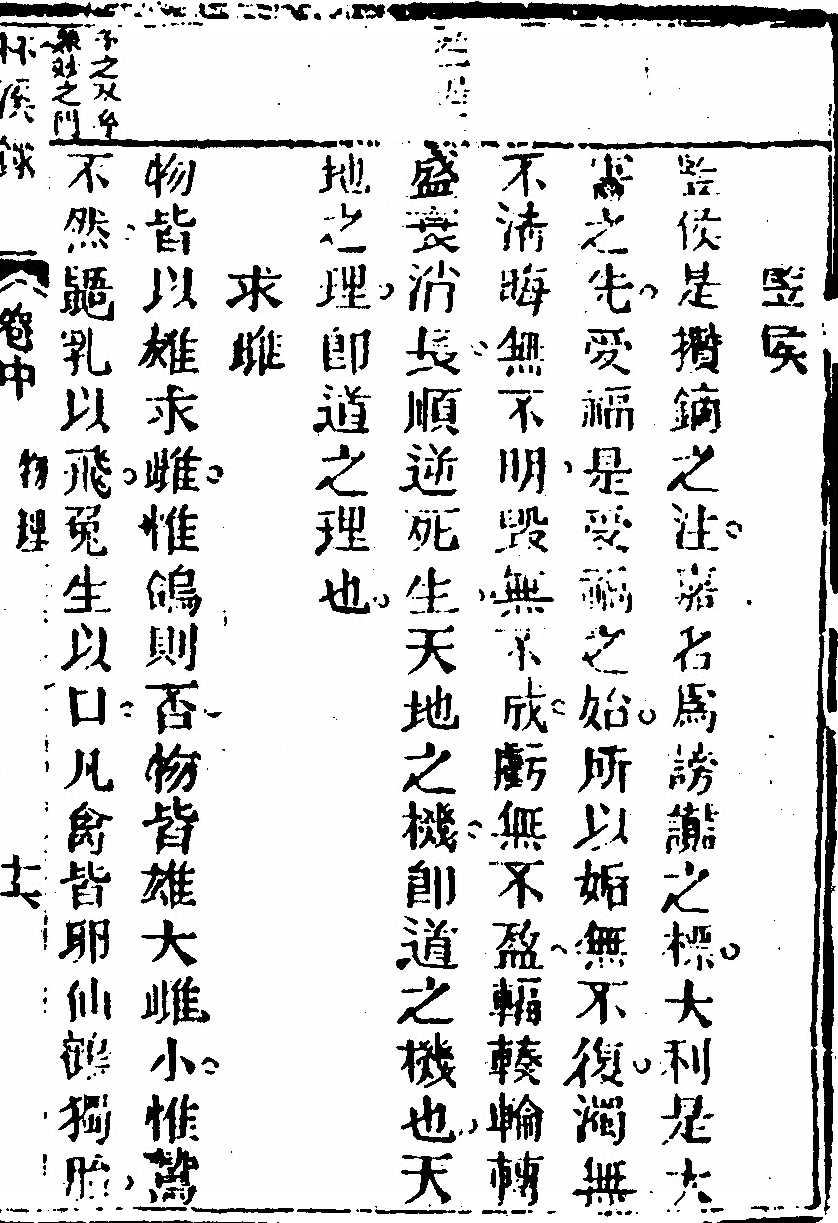 堅侯
堅侯是攢鏑之注嘉名爲謗讟之標大利是大
害之先愛福是受禍之始所以姤無不復濁無
不清晦無不明毀無不成虧無不盈輻輳輪轉
盛衰消長順逆死生天地之機卽道之機也天
地之理卽道之理也
求雌
物皆以雄求雌惟鴿則否物皆雄大雌小惟鶯
不然鼯乳以飛兔生以口凡禽皆卵仙鶴獨胎
之及
妙之門
林溪錄
卷中
物理
十六